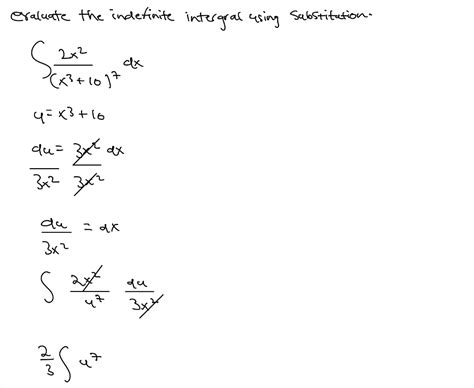 evaluate the indefinite intergral using substitution.
∫ 2x²/(x³+10)⁷ dx
u = x³+10
du/3x² = 3x²/3x² dx
du/3x² = dx
∫ 2x²/u⁷ du/3x²
2/3 ∫ u⁷